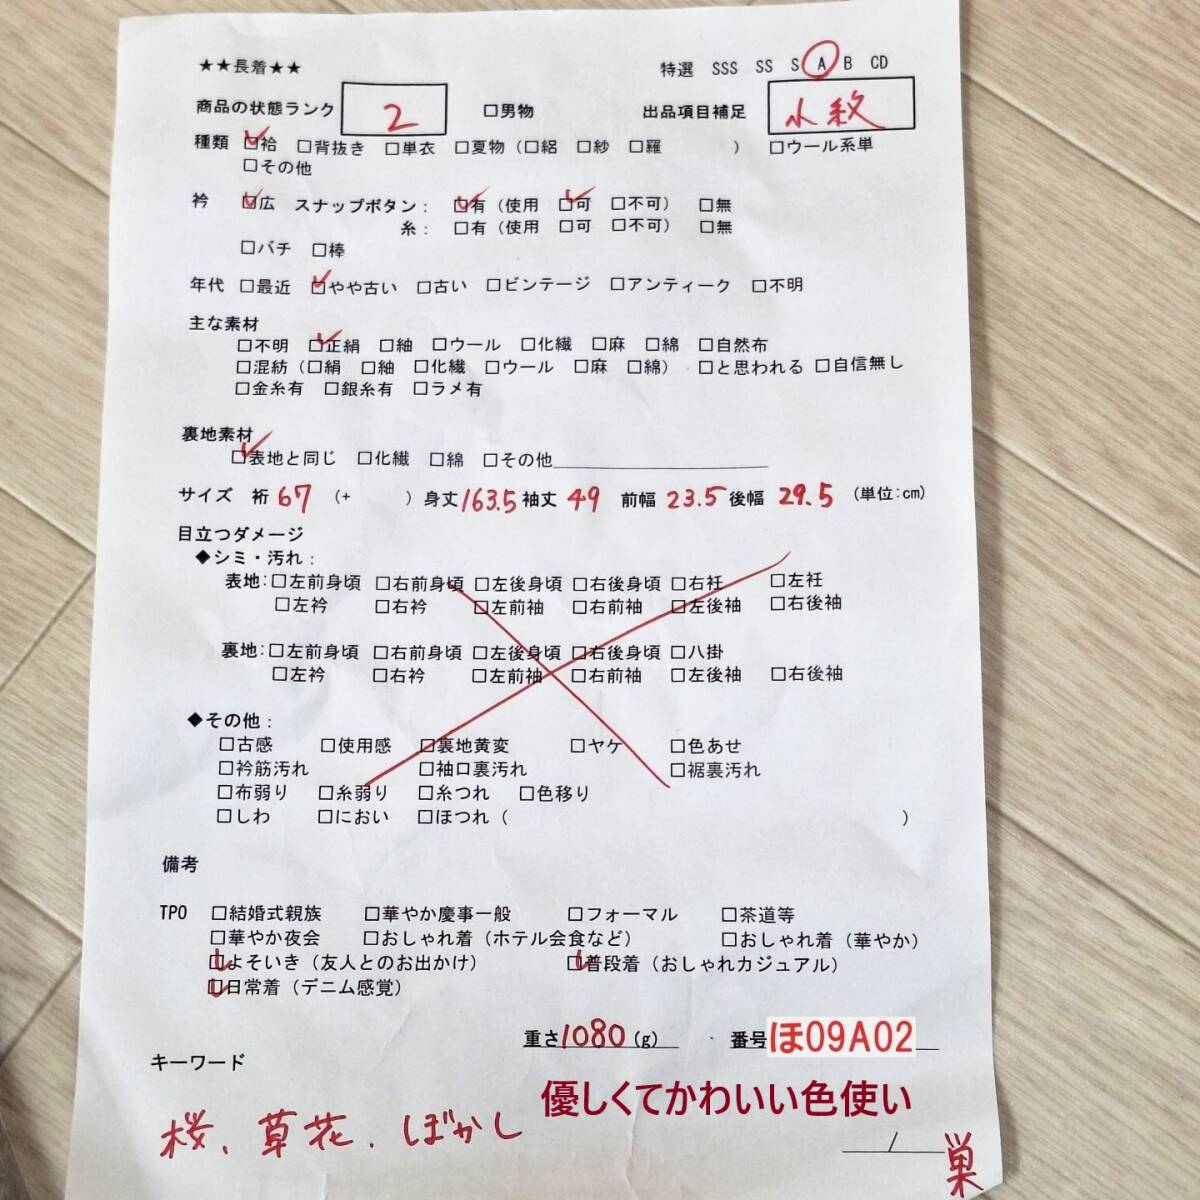 ★★長着★★ 特選 SSS SS S A B CD
商品の状態ランク 2 □男物 出品項目補足 小紋
種類 □袷 □背抜き □単衣 □夏物（□絽 □紗 □羅 ） □ウール系単
□その他
衿 □広 スナップボタン： □有（使用 □可 □不可） □無
糸： □有（使用 □可 □不可） □無
□バチ □棒
年代 □最近 □やや古い □古い □ビンテージ □アンティーク □不明
主な素材
□不明 □正絹 □紬 □ウール □化繊 □麻 □綿 □自然布
□混紡（□絹 □紬 □化繊 □ウール □麻 □綿） □と思われる □自信無し
□金糸有 □銀糸有 □ラメ有
裏地素材
□表地と同じ □化繊 □綿 □その他
サイズ 裄 67 （+ ）身丈 163.5 袖丈 49 前幅 23.5 後幅 29.5 （単位：cm）
目立つダメージ
◆シミ・汚れ：
表地：□左前身頃 □右前身頃 □左後身頃 □右後身頃 □右衽 □左衽
□左衿 □右衿 □左前袖 □右前袖 □左後袖 □右後袖
裏地：□左前身頃 □右前身頃 □左後身頃 □右後身頃 □八掛
□左衿 □右衿 □左前袖 □右前袖 □左後袖 □右後袖
◆その他：
□古感 □使用感 □裏地黄変 □ヤケ □色あせ
□衿筋汚れ □袖口裏汚れ □裾裏汚れ
□布弱り □糸弱り □糸つれ □色移り
□しわ □におい □ほつれ（ ）
備考
TPO □結婚式親族 □華やか慶事一般 □フォーマル □茶道等
□華やか夜会 □おしゃれ着（ホテル会食など） □おしゃれ着（華やか）
□よそいき（友人とのお出かけ） □普段着（おしゃれカジュアル）
□日常着（デニム感覚）
重さ1080(g) 番号ほ09A02
キーワード
優しくてかわいい色使い
桜、草花、ぼかし
/ 巣